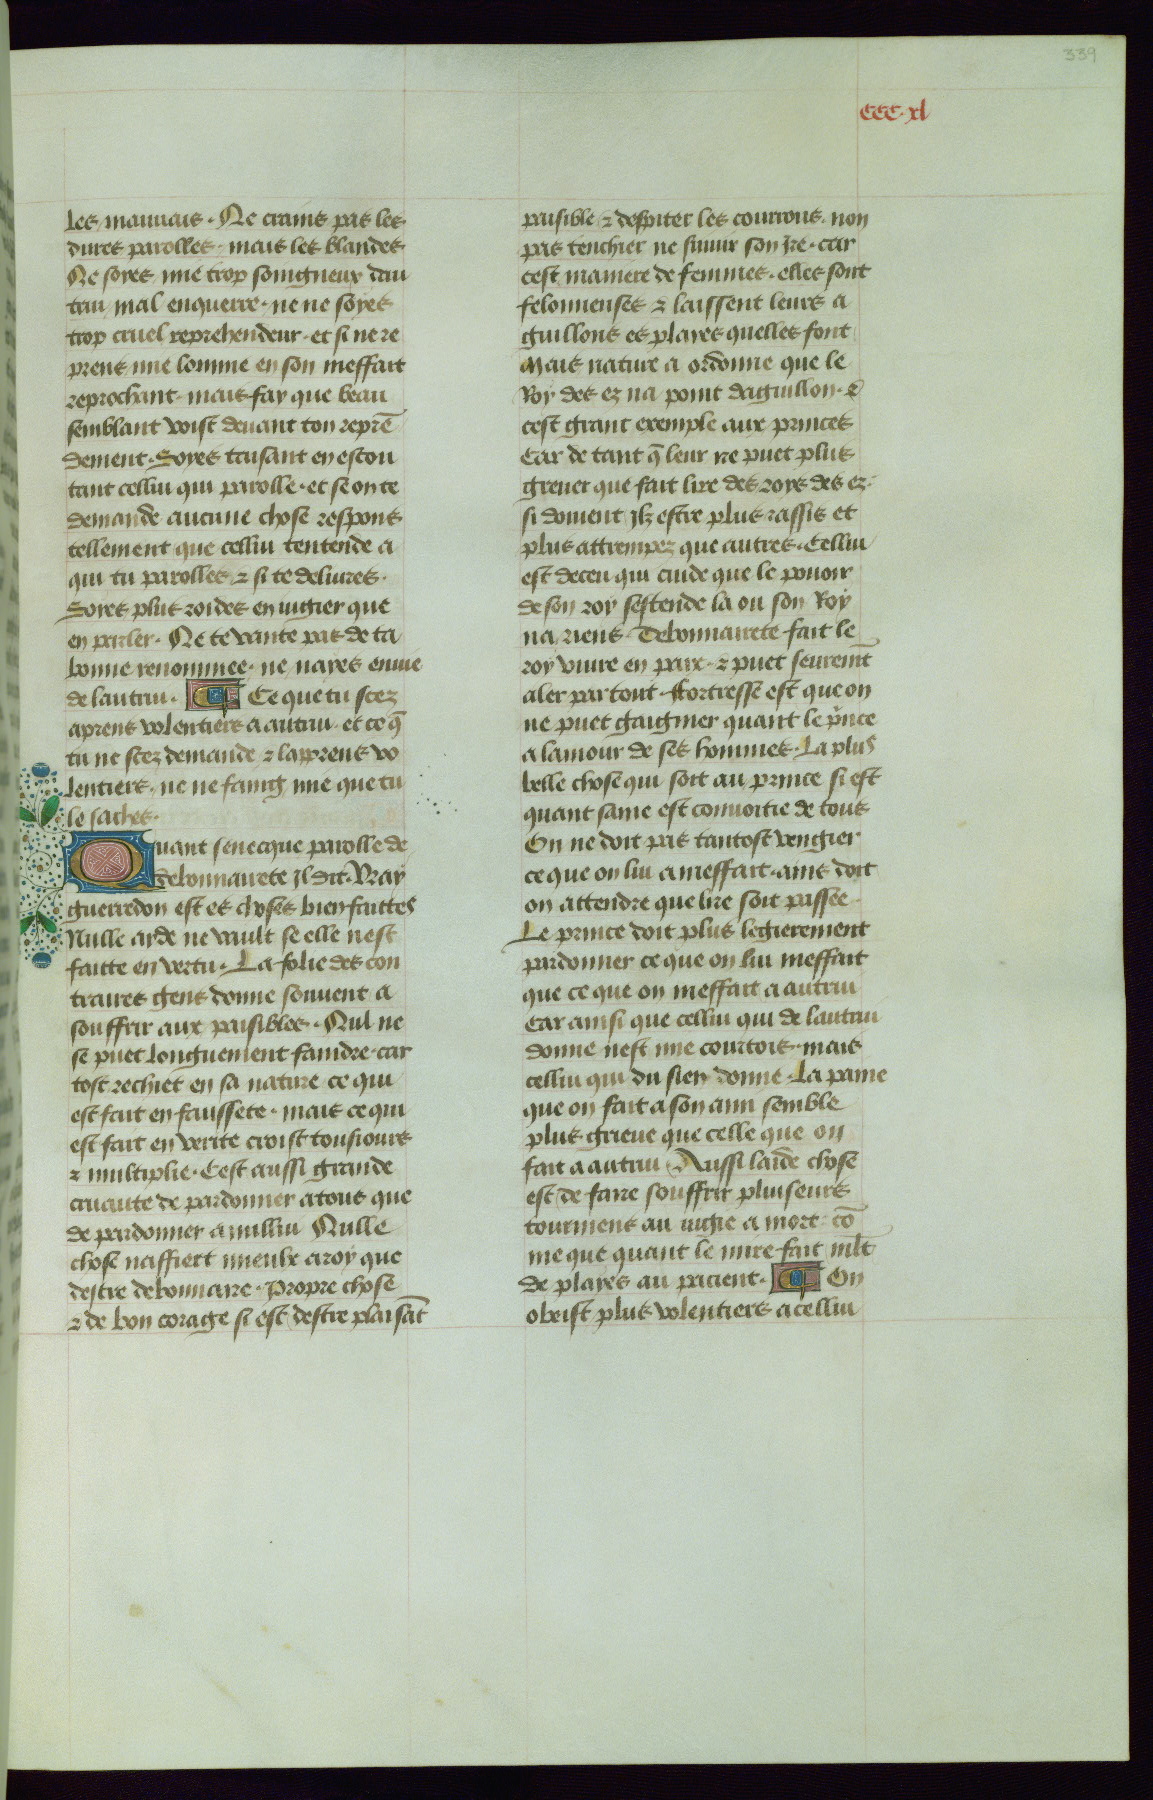 339
CCC.xl
les mauuais. Ne crains pas les
dures parolles. mais les blandes
Ne soyes mie trop songneux dau
trui mal enquerre. ne ne soyes
trop cruel reprehendeur. et si ne re
prens mie lomme en son meffait
reprochant. mais fay que beau
semblant voist deuant ton reprē
dement. Soyes taisant en escou
tant cellui qui parolle. et se on te
demande aucune chose respons
tellement que cellui tentende a
qui tu parolles ⁊ si te deliures.
Soyes plus roides en iugier que
en parler. Ne te vante pas de ta
bonne renommee. ne nayes enuie
de lautrui. ¶ Ce que tu scez
aprens volentiers a autrui. et ce q̄
tu ne scez demande ⁊ lapprens vo
lentiers. ne ne faing mie que tu
le saches.
Quant senecque parolle de
debonnairete jl dit. Vray
guerredon est es choses bien faittes
Nulle ayde ne vault se elle nest
faitte en vertu. La folie des con
traires gens donne souuent a
souffrir aux paisibles. Nul ne
se puet longuement faindre. car
tost rechiet en sa nature ce qui
est fait en faussete. mais ce qui
est fait en verite croist tousiours
⁊ multiplie. Cest aussi grande
cruaute de pardonner a tous que
de pardonner a nullui Nulle
chose naffiert mieulx a roy que
destre debonnaire. Propre chose
⁊ de bon corage si est destre plaisāt
paisible ⁊ despiter les courrous. non
pas tenchier ne suiuir son jre. car
cest maniere de femmes. elles sont
felonneuses ⁊ laissent leurs a
guillons es playes quelles font
Mais nature a ordonne que le
Roy des ez na point daguillon. ⁊
cest grant exemple aux princes
Car de tant q̄ leur jre puet plus
greuer que fait lire des roys des ez.
si doiuent jlz estre plus rassis et
plus attrempez que autres. Cellui
est deceu qui cuide que le pouoir
de son roy sestende la ou son Roy
na riens. Debonnairete fait le
roy viure en paix. ⁊ puet seuremt̄
aler par tout. Fortresse est que on
ne puet gaignier quant le p̄nce
a lamour de ses hommes. La plus
belle chose qui soit au prince si est
quant same est conuoitie de tous
On ne doit pas tantost vengier
ce que on lui a meffait. ains doit
on attendre que lire soit passee.
Le prince doit plus legierement
pardonner ce que on lui meffait
que ce que on meffait a autrui
Car ainsi que cellui qui de lautrui
donne nest mie courtois. mais
cellui qui du sien donne. La paine
que on fait a son ami semble
plus grieue que celle que on
fait a autrui. Aussi laide chose
est de faire souffrir pluiseurs
tourmens au iugie a mort. cō
me que quant le mire fait ml̄t
de playes au pacient. ¶ On
obeist plus volentiers a cellui